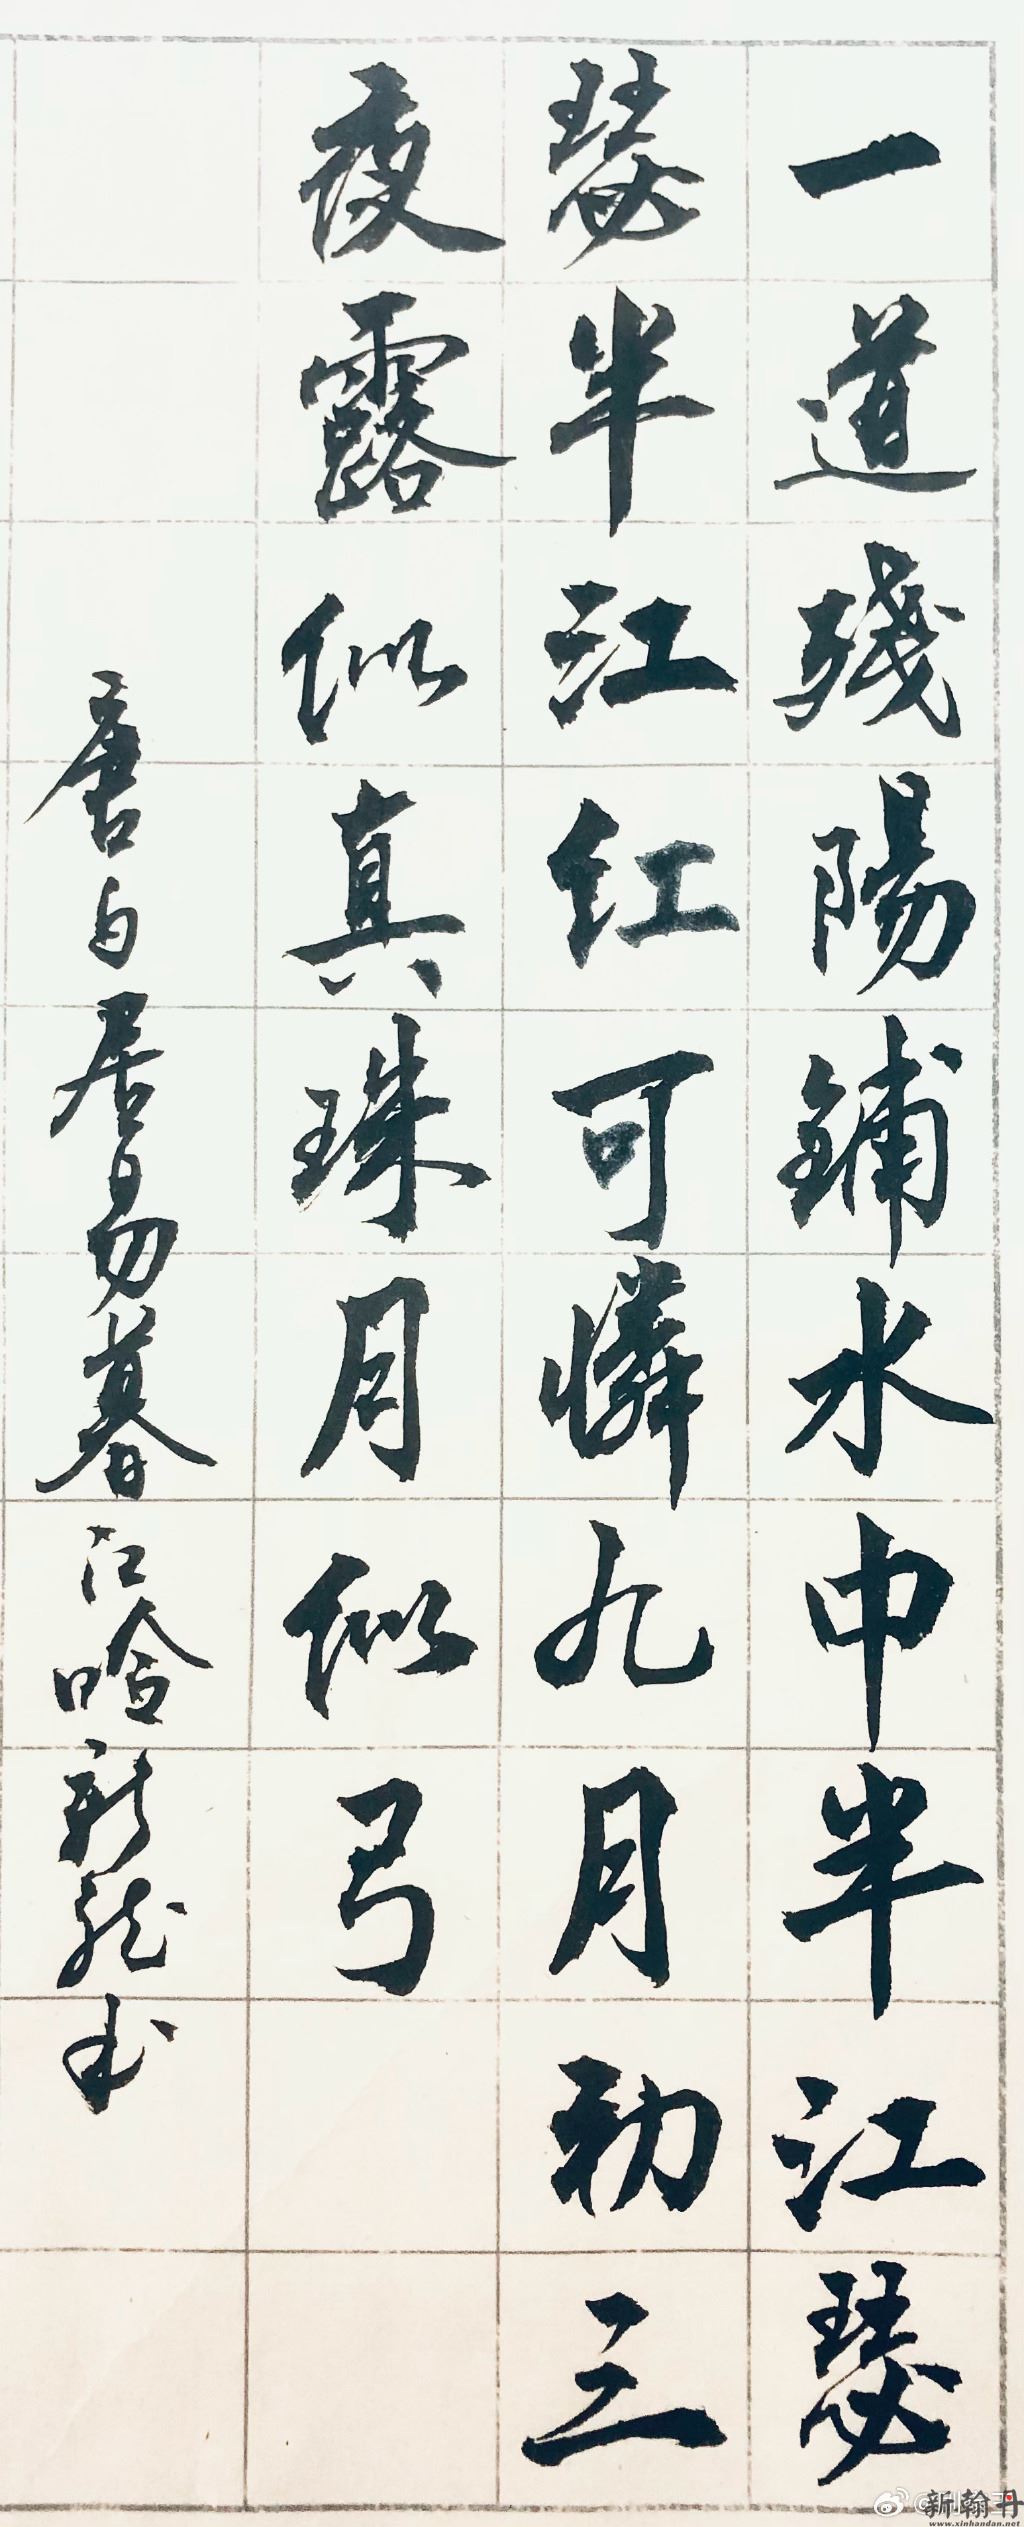 一道殘陽鋪水中半江瑟
瑟半江红可憐九月初三
夜露似真珠月似弓
唐白居易暮江吟新龙书
新翰丹
www.xinhandan.net